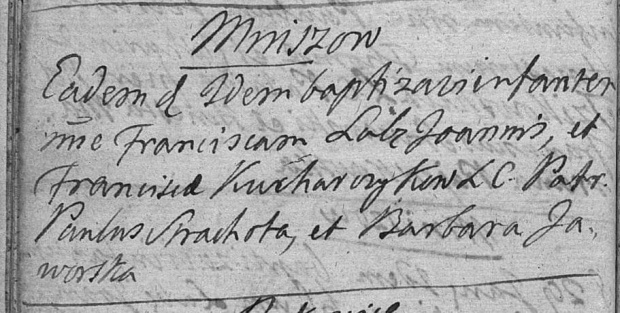 Mniszow
Eadem d Idem baptizavi infantem
nne Franciscam Lab: Joannis, et
Franciscæ Kucharczykow L C. Patr.
Paulus Strachota, et Barbara Ja-
worska